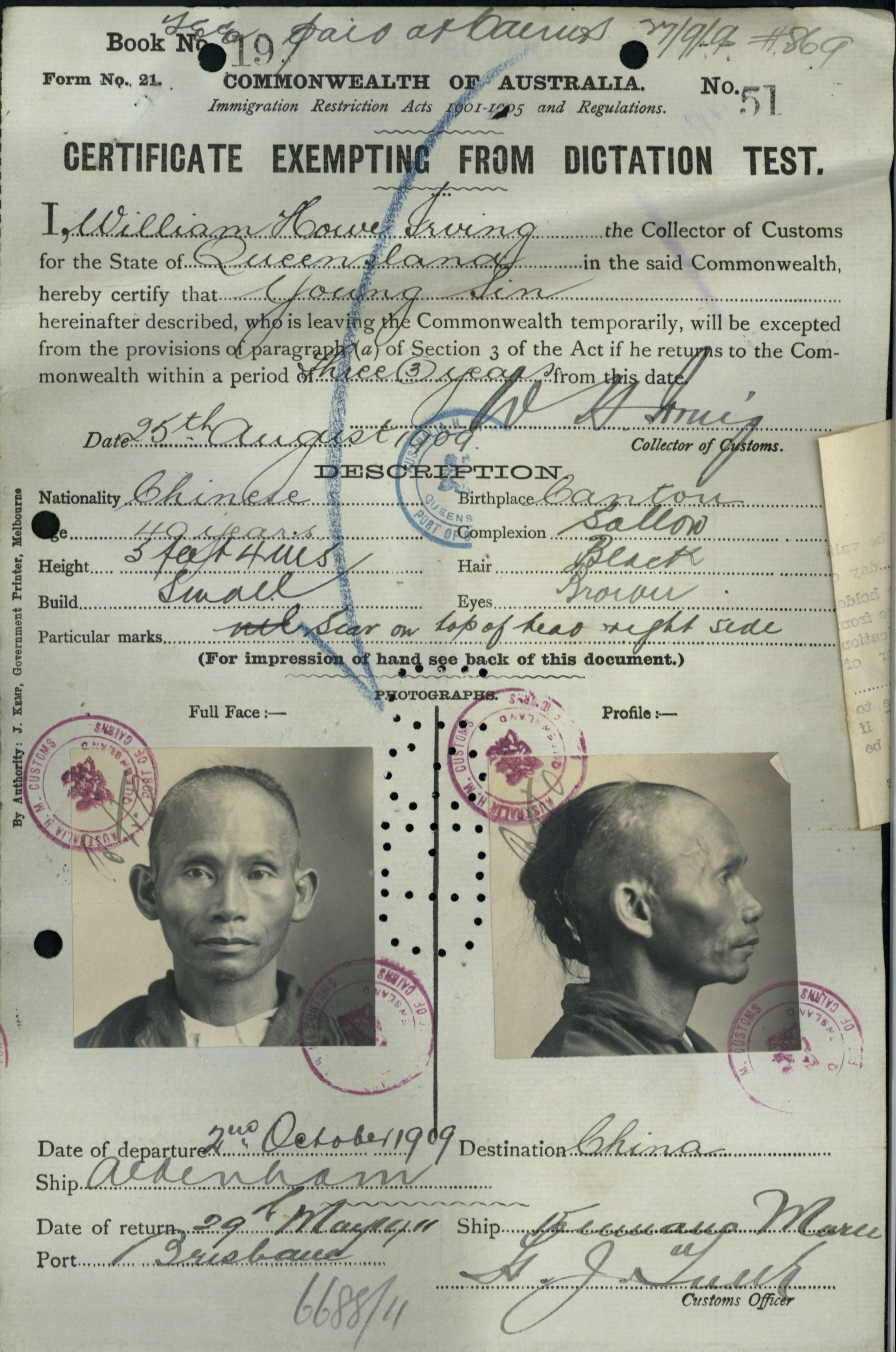 Fee paid at Cairns 27/9/9 #869
Book No. 19
Form No. 21. COMMONWEALTH OF AUSTRALIA. No. 51
Immigration Restriction Acts 1901-1905 and Regulations.
CERTIFICATE EXEMPTING FROM DICTATION TEST.
I, William Howe Irving the Collector of Customs
for the State of Queensland in the said Commonwealth,
hereby certify that Young Sin
hereinafter described, who is leaving the Commonwealth temporarily, will be excepted
from the provisions of paragraph (a) of Section 3 of the Act if he returns to the Com-
monwealth within a period of three (3) years from this date.
W H Irving
Date 25th August 1909 Collector of Customs.
DESCRIPTION.
Nationality Chinese Birthplace Canton
Age 40 years Complexion Sallow
Height 5 feet 4 ins Hair Black
Build Small Eyes Brown
Particular marks nil Scar on top of head right side
(For impression of hand see back of this document.)
PHOTOGRAPHS.
Full Face :— Profile :—
H. M. CUSTOMS PORT OF CAIRNS QUEENSLAND AUSTRALIA
By Authority: J. KEMP, Government Printer, Melbourne
Date of departure 2nd October 1909 Destination China
Ship Aldenham
Date of return 29th May 1911 Ship Kumano Maru
Port Brisbane
Customs Officer
6688/11